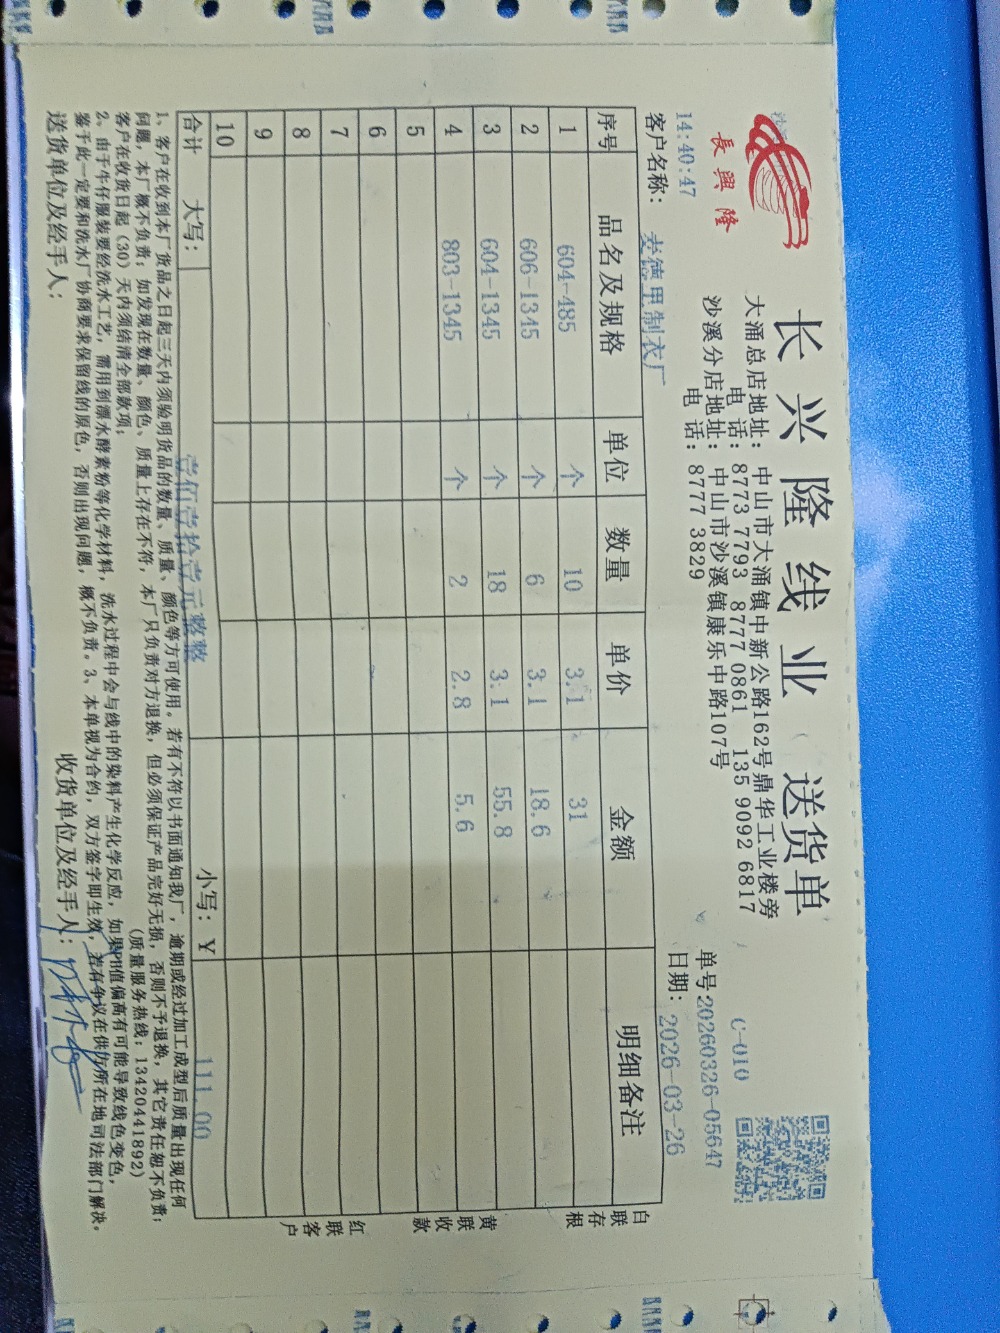 長興隆
长兴隆线业 送货单
C-010
大涌总店地址：中山市大涌镇中新公路162号鼎华工业楼旁
电话：8773 7793 8777 0861 135 9092 6817
沙溪分店地址：中山市沙溪镇康乐中路107号
电话：8777 3829
单号20260326-05647
14:40:47
日期：2026-03-26
客户名称：麦德里制衣厂
序号 品名及规格 单位 数量 单价 金额 明细备注
1 604-485 个 10 3.1 31
2 606-1345 个 6 3.1 18.6
3 604-1345 个 18 3.1 55.8
4 803-1345 个 2 2.8 5.6
5
6
7
8
9
10
合计 大写：壹佰壹拾壹元整整 小写：￥ 111.00
白联存根
黄联收款
红联客户
1、客户在收到本厂货品之日起三天内须验明货品的数量、质量、颜色等方可使用。若有不符以书面通知我厂，逾期或经过加工成型后质量出现任何
问题，本厂概不负责；如发现在数量、颜色、质量上存在不符，本厂只负责对方退换，但必须保证产品完好无损，否则不予退换，其它责任恕不负责；
客户在收货日起（30）天内须结清全部款项；
(质量服务热线：13420441892)
2、由于牛仔服装要经洗水工艺，需用到漂水酵素粉等化学材料，洗水过程中会与线中的染料产生化学反应，如果PH值偏高有可能导致线色变色，
鉴于此一定要和洗水厂协商要求保留线的原色，否则出现问题，概不负责。3、本单视为合约，双方签字即生效，若有争议在供方所在地司法部门解决。
送货单位及经手人：
收货单位及经手人：